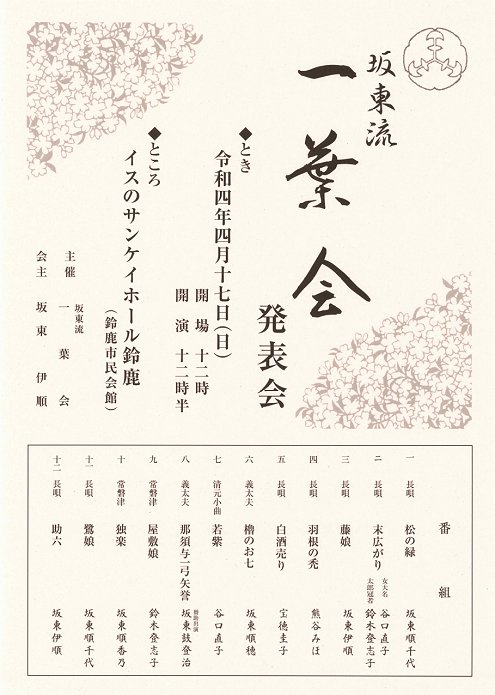 坂東流
一葉会
発表会
◆とき
令和四年四月十七日（日）
開場 十二時
開演 十二時半
◆ところ
イスのサンケイホール鈴鹿
（鈴鹿市民会館）
主催 坂東流 一葉会
会主 坂東伊順
番組
一 長唄 松の緑 坂東順千代
二 長唄 末広がり 女大名 谷口直子
太郎冠者 鈴木登志子
三 長唄 藤娘 坂東伊順
四 長唄 羽根の禿 熊谷みほ
五 長唄 白酒売り 宝徳圭子
六 義太夫 櫓のお七 坂東順穂
七 清元小曲 若紫 谷口直子
八 義太夫 那須与一弓矢誉 賛助出演 坂東鼓登治
九 常磐津 屋敷娘 鈴木登志子
十 常磐津 独楽 坂東順香乃
十一 長唄 鷺娘 坂東順千代
十二 長唄 助六 坂東伊順